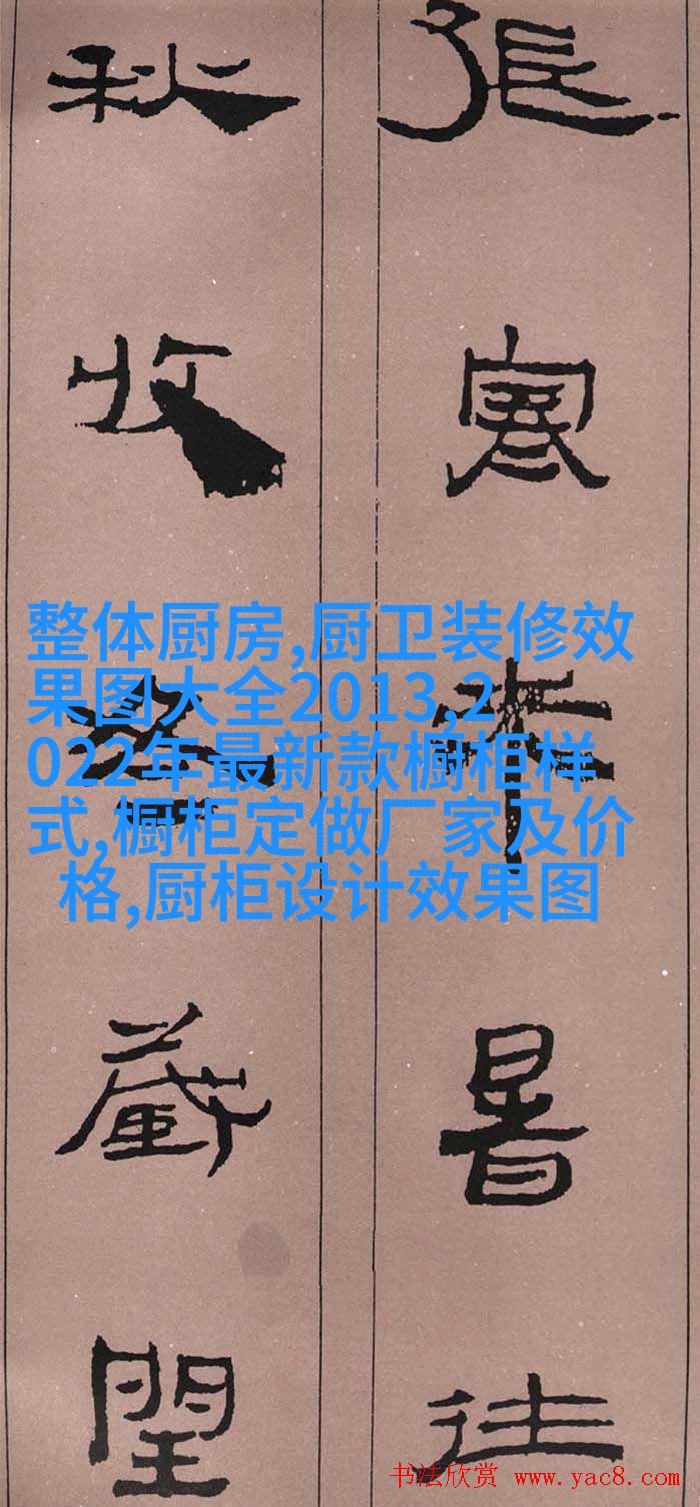 張寒來暑往
秋收冬藏閏
整体厨房,厨卫装修效
果图大全2013,2
022年最新款橱柜样
式,橱柜定做厂家及价
格,厨柜设计效果图
书法欣赏 www.yac8.com